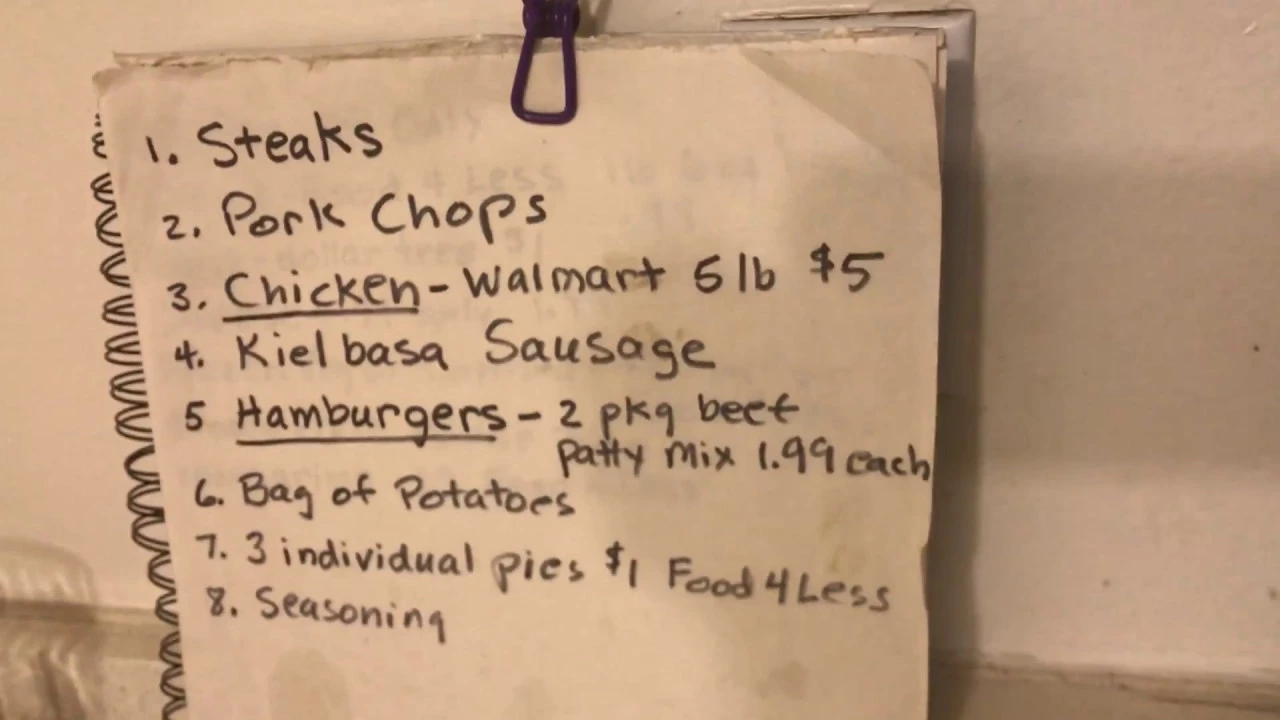 1. Steaks
2. Pork Chops
3. Chicken - Walmart 5 lb $5
4. Kielbasa Sausage
5 Hamburgers - 2 pkg beef
patty mix 1.99 each
6. Bag of Potatoes
7. 3 individual pies $1 Food 4 Less
8. Seasoning